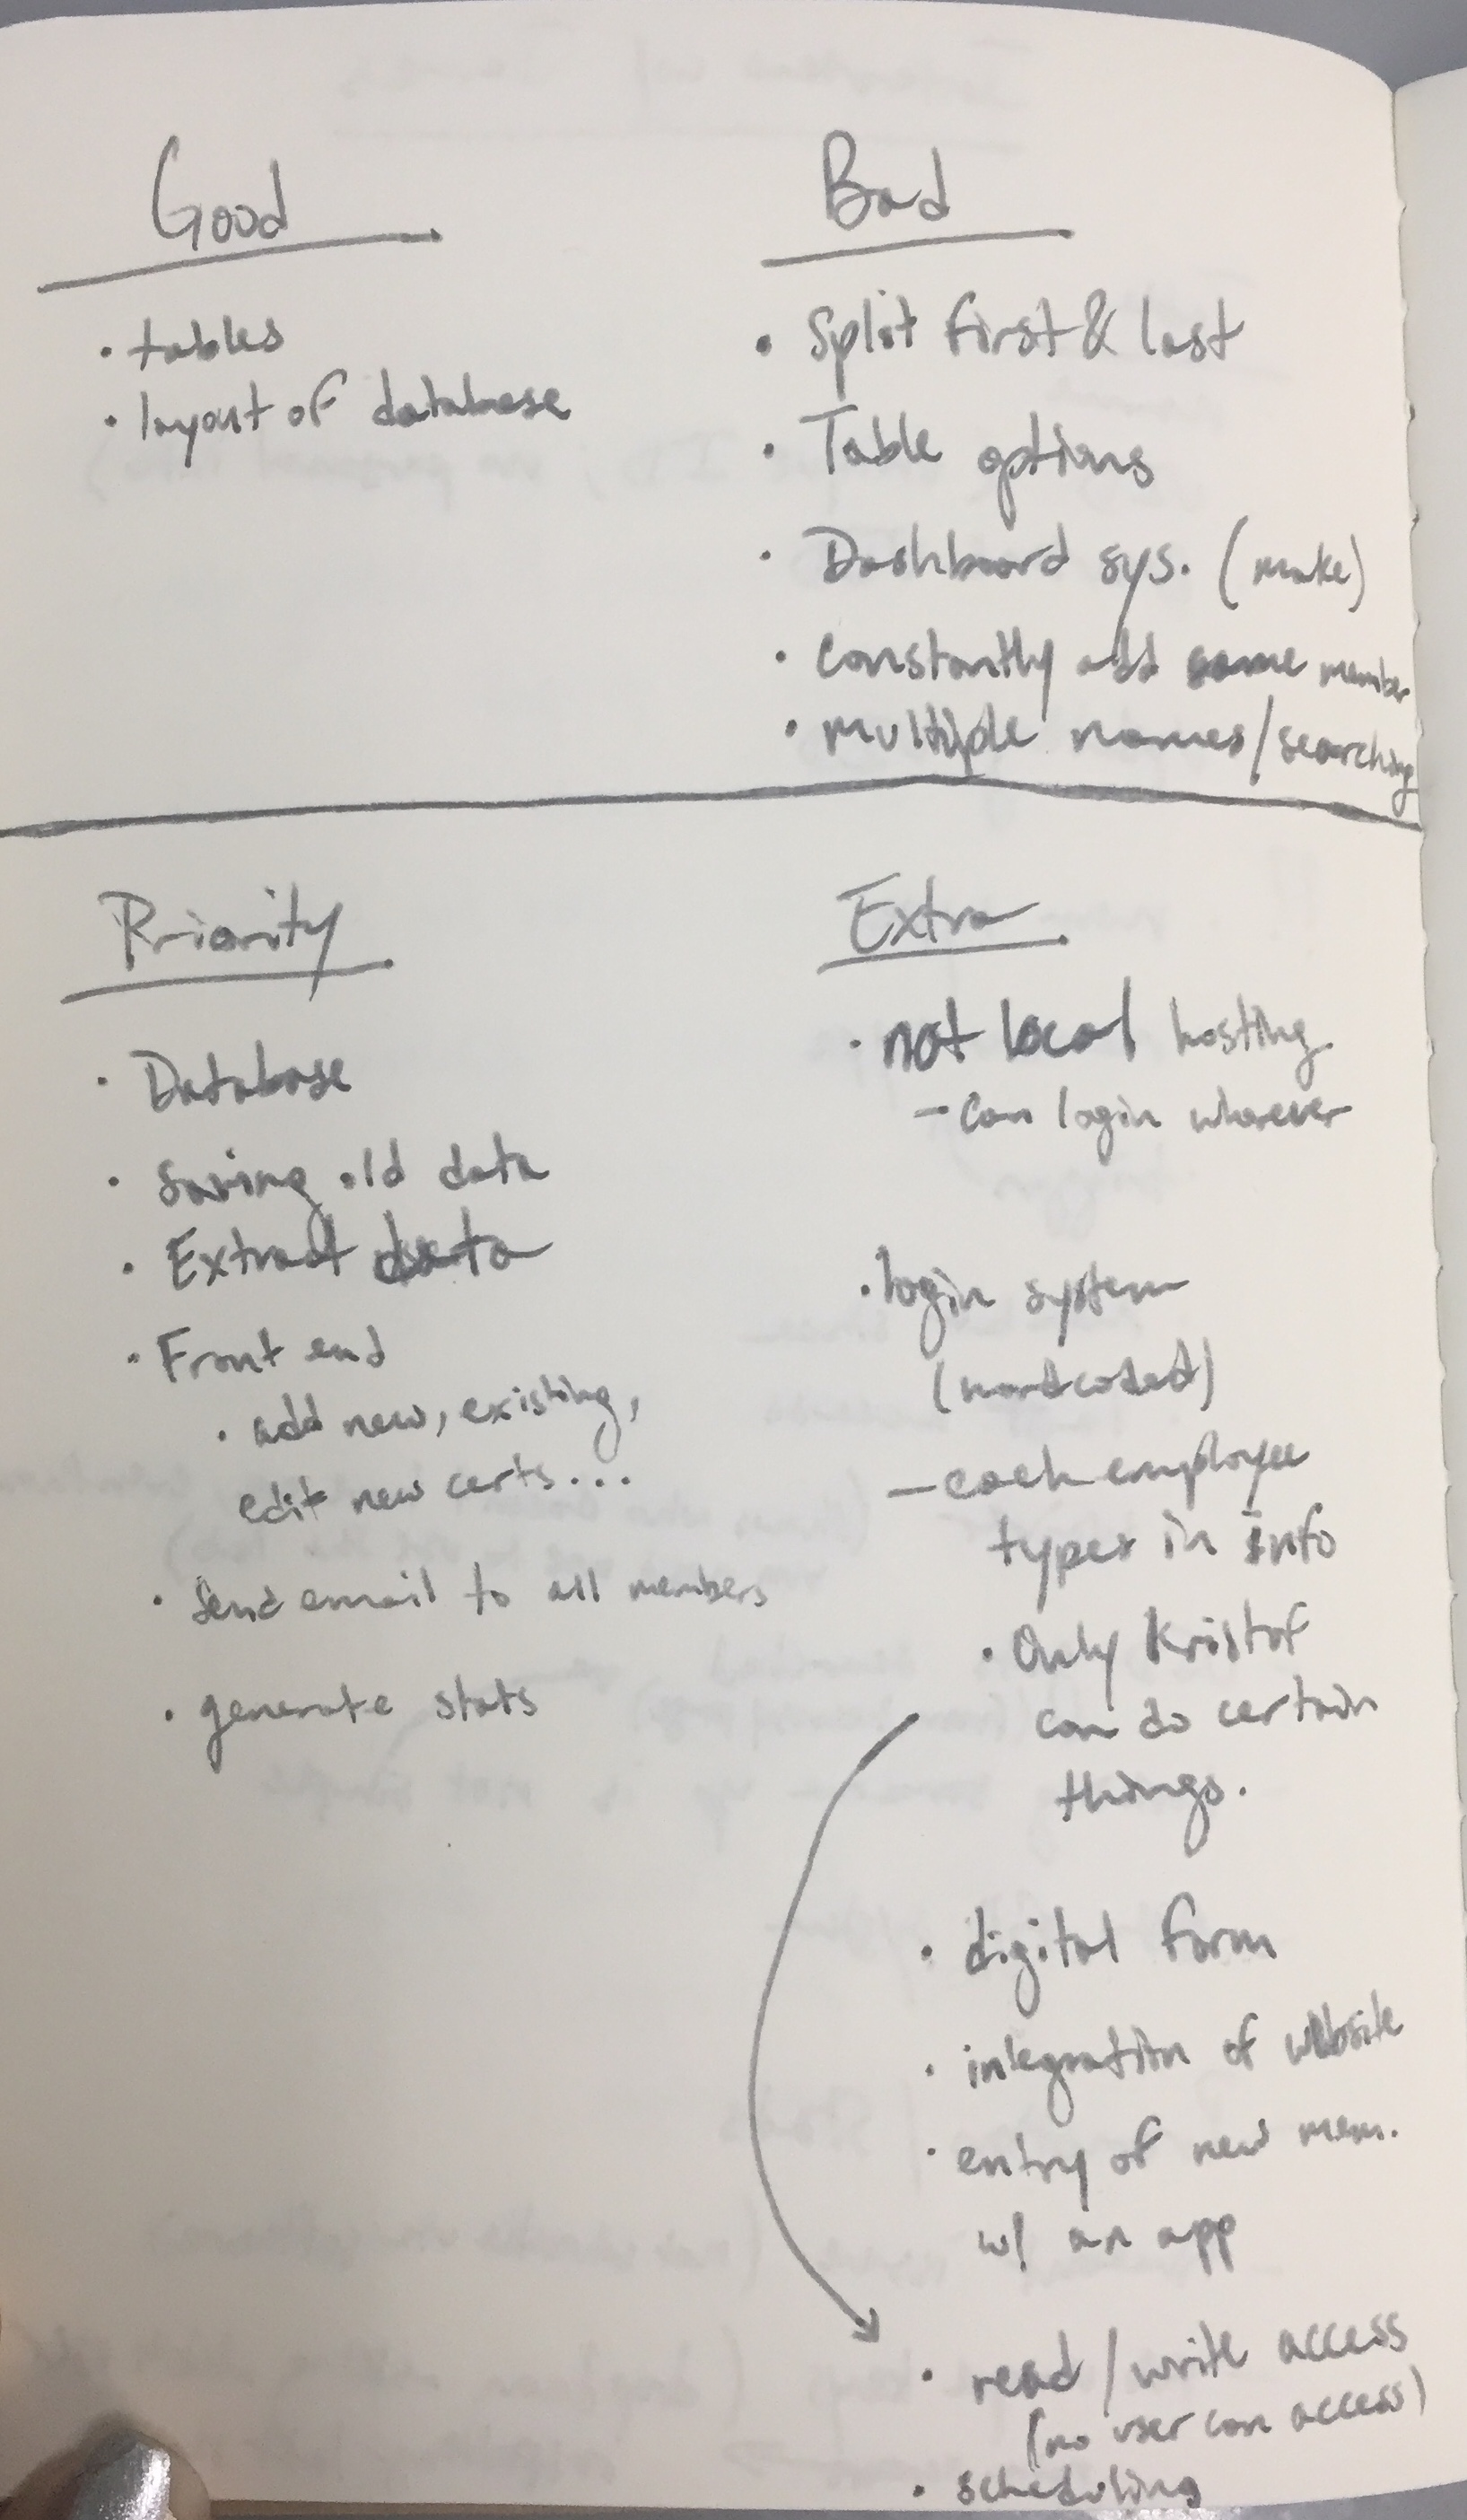 Good
• tables
• layout of database
Bad
• Split first & last
• Table options
• Dashboard sys. (make)
• constantly add same member
• multiple names/searching
Priority
• Database
• Saving old data
• Extract data
• Front end
• add new, existing,
edit new certs...
• Send email to all members
• generate stats
Extra
• not local hosting
- can login wherever
• login system
(hardcoded)
- each employee
types in info
• Only Kristof
can do certain
things.
• digital form
• integration of website
• entry of new mem.
w/ an app
• read / write access
(no user can access)
• scheduling